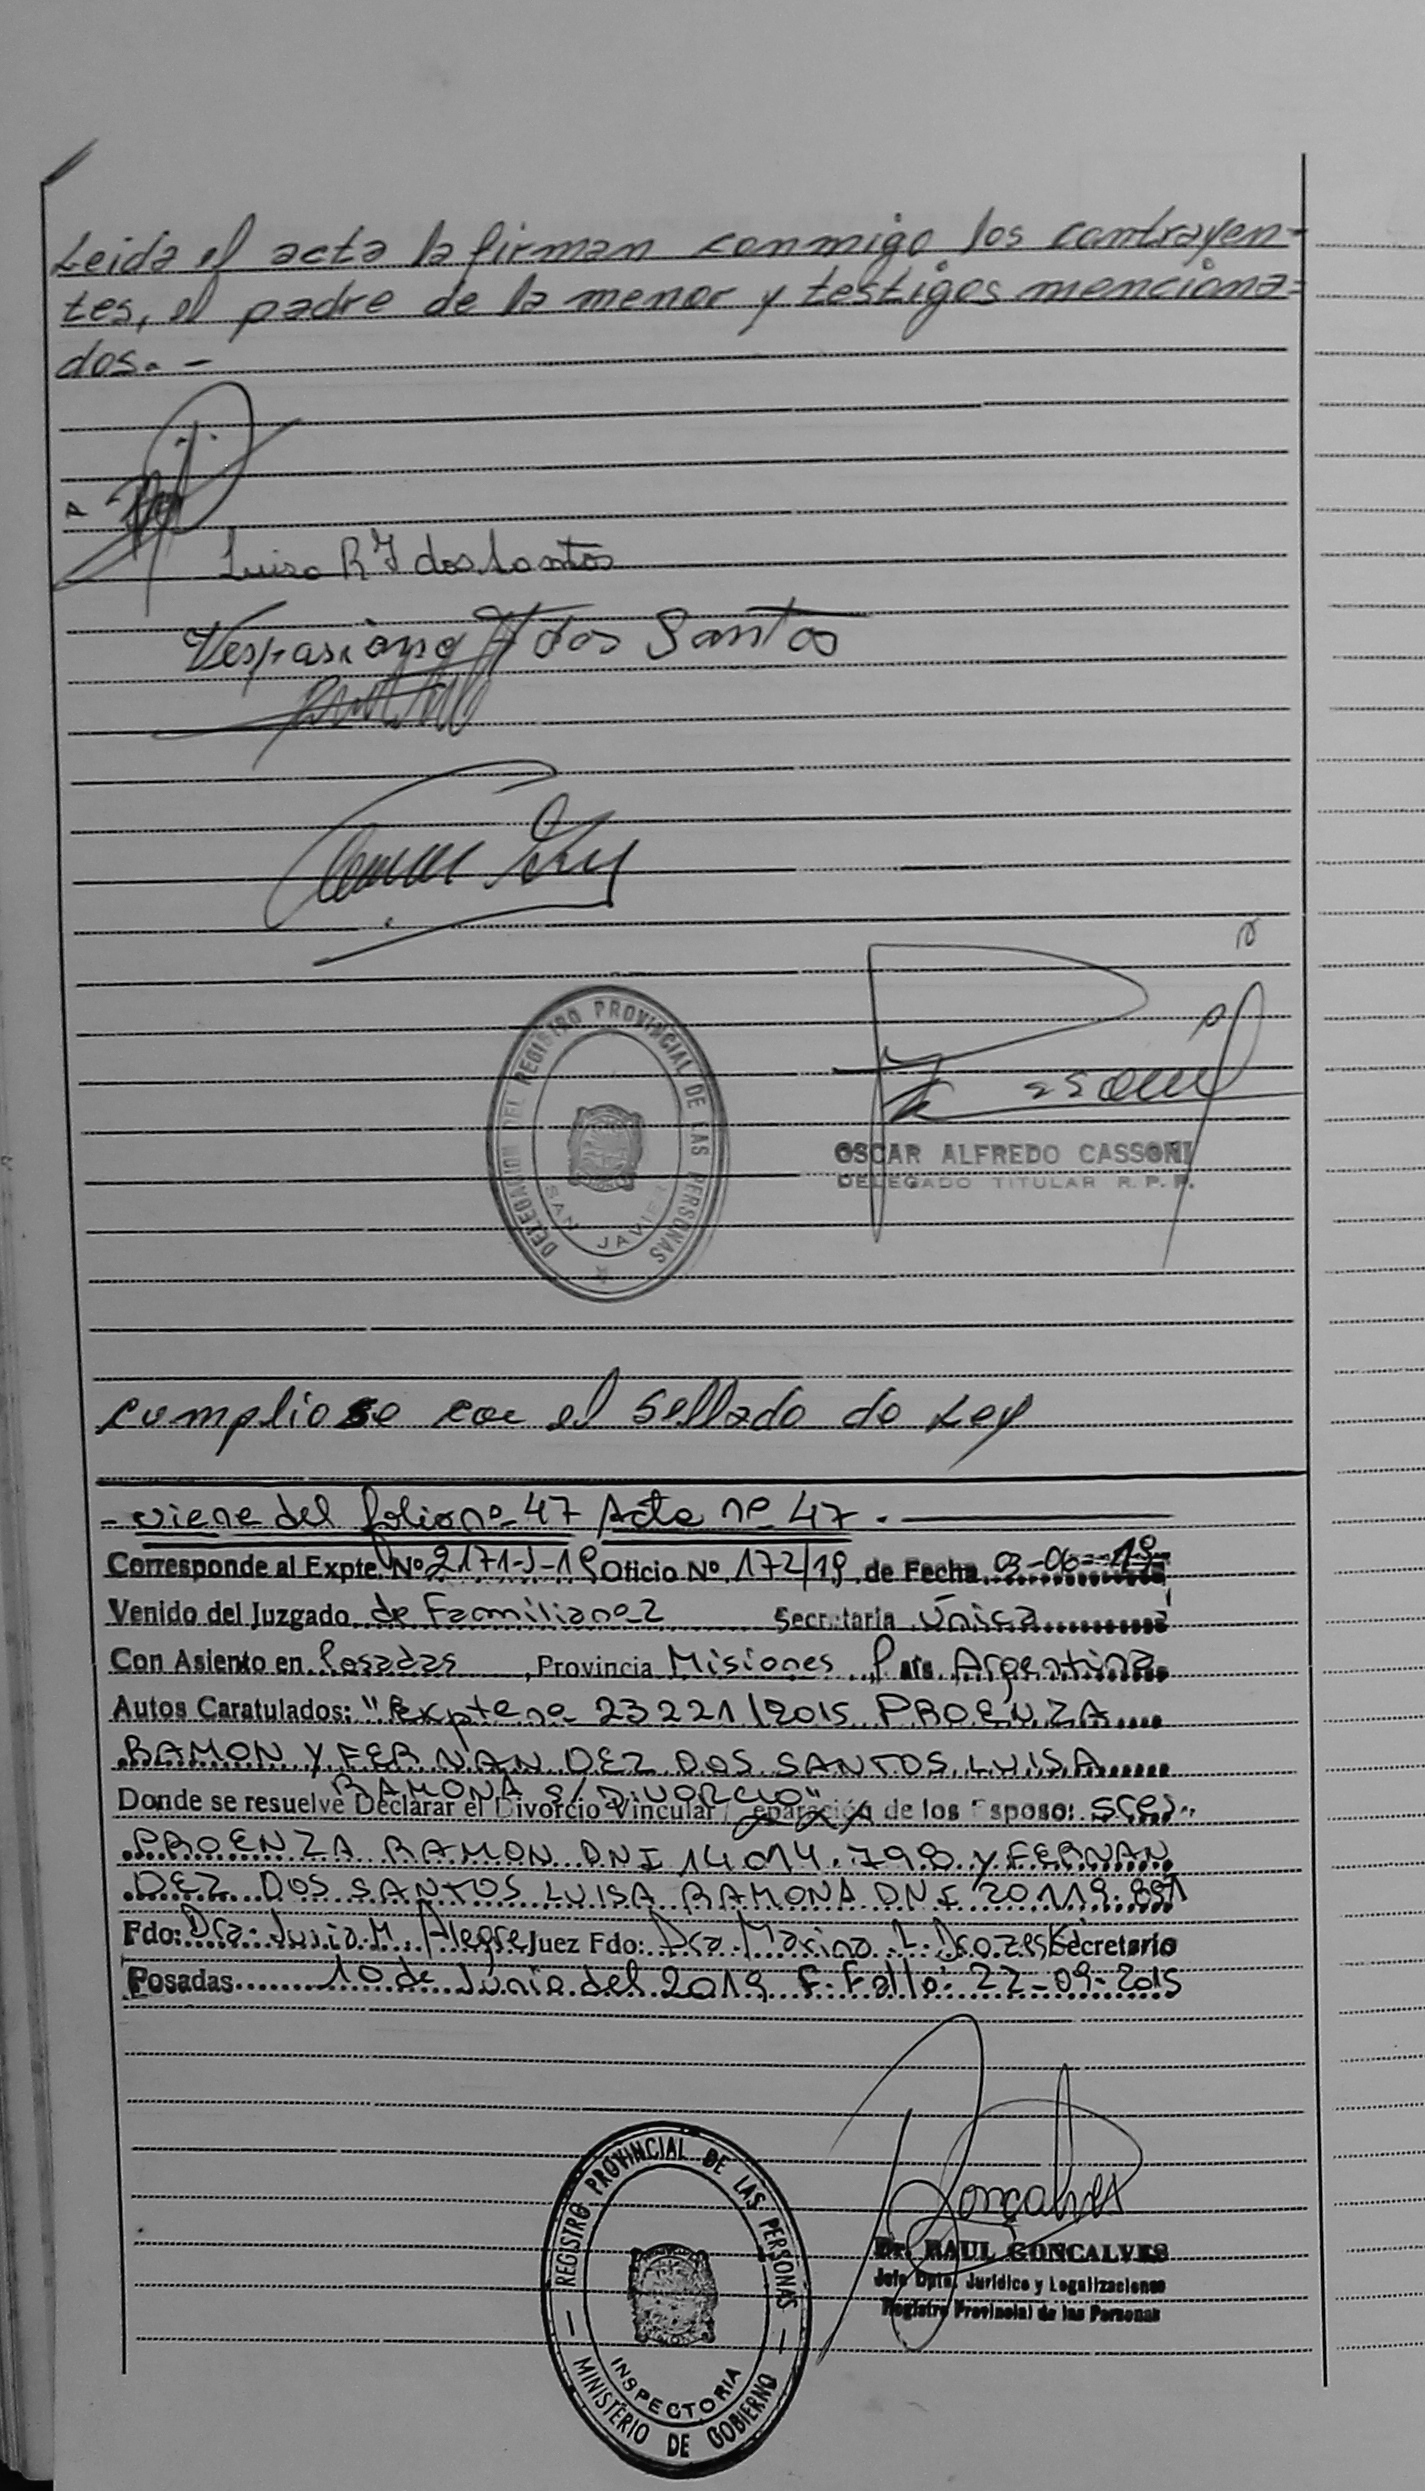 Leida el acta la firman conmigo, los contrayen-
tes, el padre de la menor y testigos menciona=
dos. -
Luisa R F dos Santos
Vespasiano F dos Santos
DELEGACION DEL REGISTRO PROVINCIAL DE LAS PERSONAS
SAN JAVIER
OSCAR ALFREDO CASSONI
DELEGADO TITULAR R. P. P.
Cumpliose con el sellado de Ley
- viene del folio nº 47 Acta nº 47 .
Corresponde al Expte. Nº 2171-J-19 Oficio Nº 172/19 de Fecha 03-06-19
Venido del Juzgado de Familia nº 2 Secretaria Única
Con Asiento en Posadas, Provincia Misiones País Argentina
Autos Caratulados: "Expte nº 23221/2015 PROENZA
RAMON Y FERNANDEZ DOS SANTOS LUISA
RAMONA S/DIVORCIO"
Donde se resuelve Declarar el Divorcio Vincular / eparación de los Esposo: Sres.
PROENZA RAMON DNI 14.014.798 y FERNAN
DEZ DOS SANTOS LUISA RAMONA DNI 20.119.891
Fdo: Dra. M. Alegre Juez Fdo: Dra. Marina L. Secretario
Posadas 10 de Junio del 2019 F. Fallo: 22-09-2015
REGISTRO PROVINCIAL DE LAS PERSONAS
INSPECTORIA
MINISTERIO DE GOBIERNO
Goncalves
Dr. RAUL GONCALVES
Jefe Dpto. Jurídico y Legalizaciones
Registro Provincial de las Personas